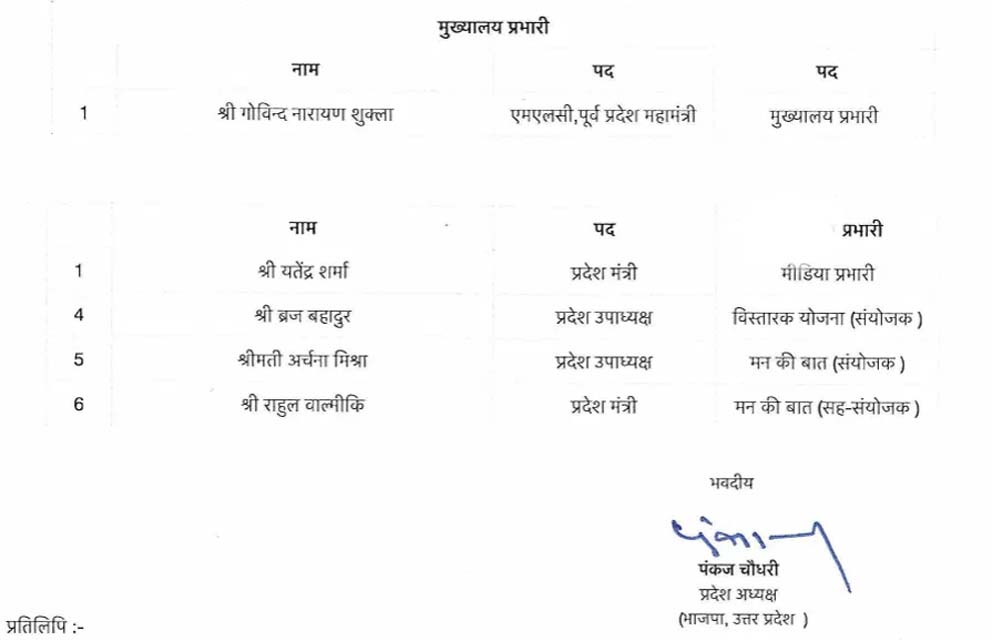 मुख्यालय प्रभारी
नाम पद पद
1 श्री गोविन्द नारायण शुक्ला एमएलसी,पूर्व प्रदेश महामंत्री मुख्यालय प्रभारी
नाम पद प्रभारी
1 श्री यतेंद्र शर्मा प्रदेश मंत्री मीडिया प्रभारी
4 श्री ब्रज बहादुर प्रदेश उपाध्यक्ष विस्तारक योजना (संयोजक )
5 श्रीमती अर्चना मिश्रा प्रदेश उपाध्यक्ष मन की बात (संयोजक )
6 श्री राहुल वाल्मीकि प्रदेश मंत्री मन की बात (सह-संयोजक )
भवदीय
पंकज चौधरी
प्रदेश अध्यक्ष
(भाजपा, उत्तर प्रदेश )
प्रतिलिपि :-